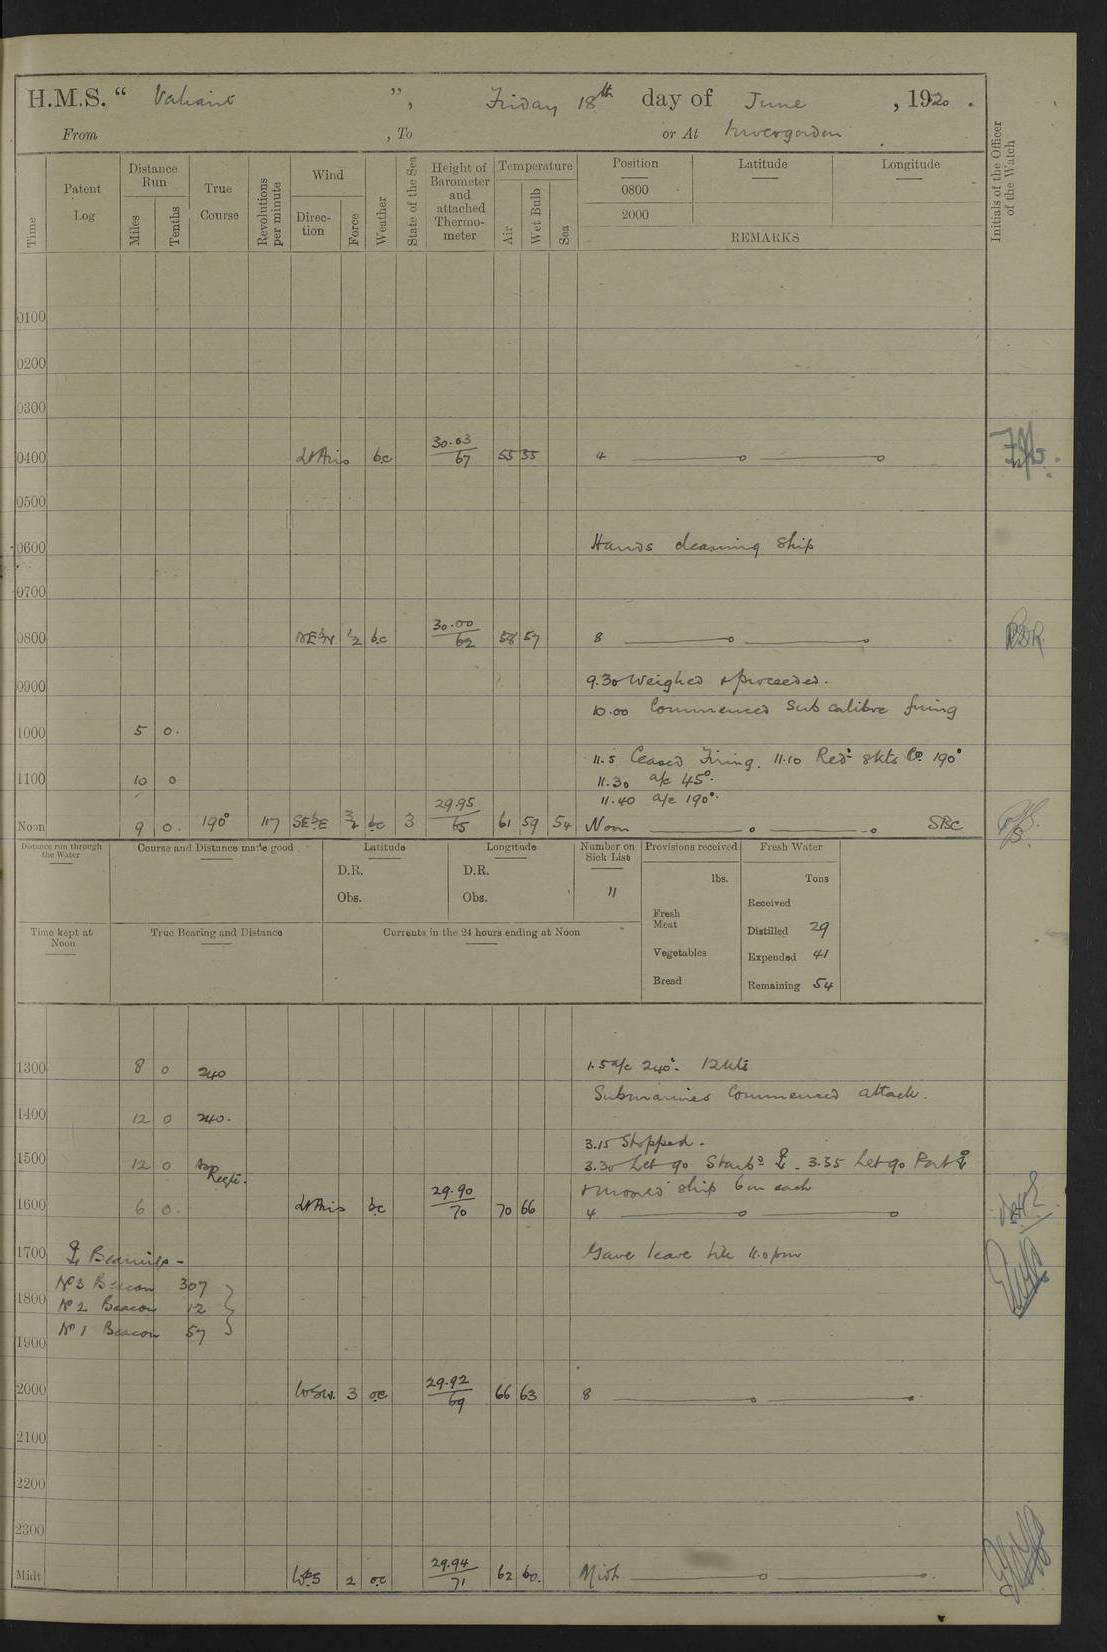 H.M.S. “ Valiant ”, Friday 18th day of June , 1920 .
From , To or At Invergordon
Time Patent Log Distance Run Miles Tenths True Course Revolutions per minute Wind Direction Force Weather State of the Sea Height of Barometer and attached Thermometer Temperature Air Wet Bulb Sea Position Latitude Longitude Initials of the Officer of the Watch
0800
2000
REMARKS
0100
0200
0300
0400 Lt Airs bc 30.03/67 55 55 4
0500
0600 Hands cleaning ship
0700
0800 1/2 bc 30.00/62 58 57 8
0900 9.30 Weighed & proceeded.
10.00 Commenced Sub calibre firing
1000 5 0.
11.5 Ceased Firing. 11.10 Red: 8kts Co. 190°
1100 10 0 11.30 a/c 45°.
11.40 a/c 190°.
Noon 9 0. 190° 117 SEbE 3/2 bc 3 29.95/65 61 59 54 Noon SBC
Distance run through the Water Course and Distance made good Latitude Longitude Number on Sick List Provisions received Fresh Water
D.R. D.R. lbs. Tons
Obs. Obs. 11 Received
Fresh Meat
Time kept at Noon True Bearing and Distance Currents in the 24 hours ending at Noon Distilled 29
Vegetables Expended 41
Bread Remaining 54
1300 8 0 240 1.5 a/c 240°. 12kts
Submarines Commenced attack.
1400 12 0 240.
3.15 Stopped.
1500 12 0 3.30 Let go Starbd ⚓. 3.35 Let go Port ⚓
& moored ship 6 on each
1600 6 0. Lt Airs bc 29.90/70 70 66 4
1700 ⚓ Bearings - Gave leave till 11.0 pm
No 3 Beacon 307
1800 No 2 Beacon 12
No 1 Beacon 57
1900
2000 WSW. 3 oc 29.92/69 66 63 8
2100
2200
2300
Midt WbS 2 oc 29.94/71 62 60. Midt